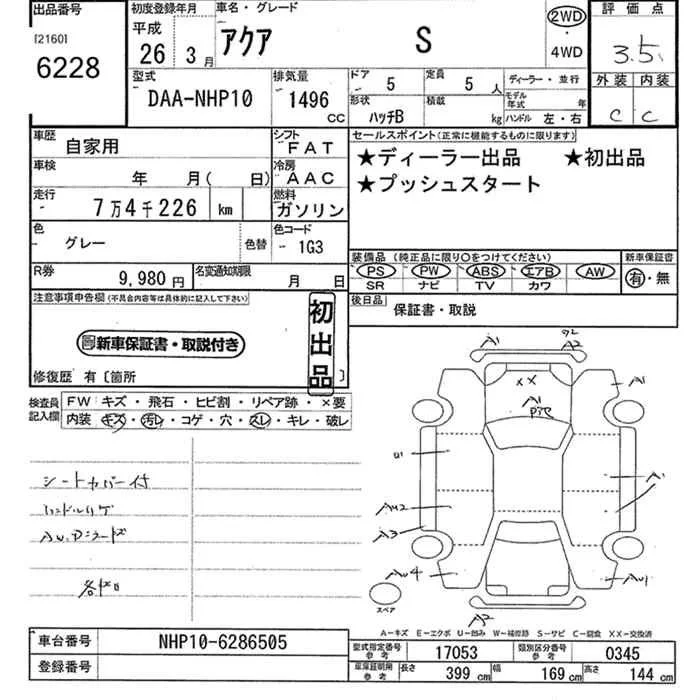 出品番号 初度登録年月 車名・グレード 2WD 評価点
[2160] 平成
6228 26年 3月 アクア S ・ 4WD 3.5
型式 排気量 ドア 5 定員 5人 ディーラー・並行 外装 内装
DAA-NHP10 1496 CC 形状 ハッチB 積載 kg モデル年式 年 ハンドル 左・右 C C
車歴 自家用 シフト FAT セールスポイント(正常に機能するものに限ります)
車検 年 月( 日) 冷房 AAC ★ディーラー出品 ★初出品
走行 7万4千226 km 燃料 ガソリン ★プッシュスタート
色 グレー 色替 色コード 1G3
装備品(純正品に限り○をつけてください) 新車保証書
R券 9,980円 名変通知期限 月 日 PS PW ABS エアB AW 有・無
SR ナビ TV カワ
注意事項申告欄(不具合内容等は具体的に記入して下さい) 初出品 後日品 保証書・取説
新車保証書・取説付き
修復歴 有〔箇所 〕
検査員記入欄 FW キズ・飛石・ヒビ割・リペア跡・×要
内装 キズ・汚レ・コゲ・穴・スレ・キレ・破レ
シートカバー付
A1 A2
A1
XX
A1
U1 A1
AU2
A3
AU4 AU1
A2
スペア
A-キズ E-エクボ U-凹み W-補修跡 S-サビ C-腐食 XX-交換済
車台番号 NHP10-6286505 型式指定番号 参考 17053 類別区分番号 参考 0345
登録番号 車庫証明用 参考 長さ 399 cm 幅 169 cm 高さ 144 cm